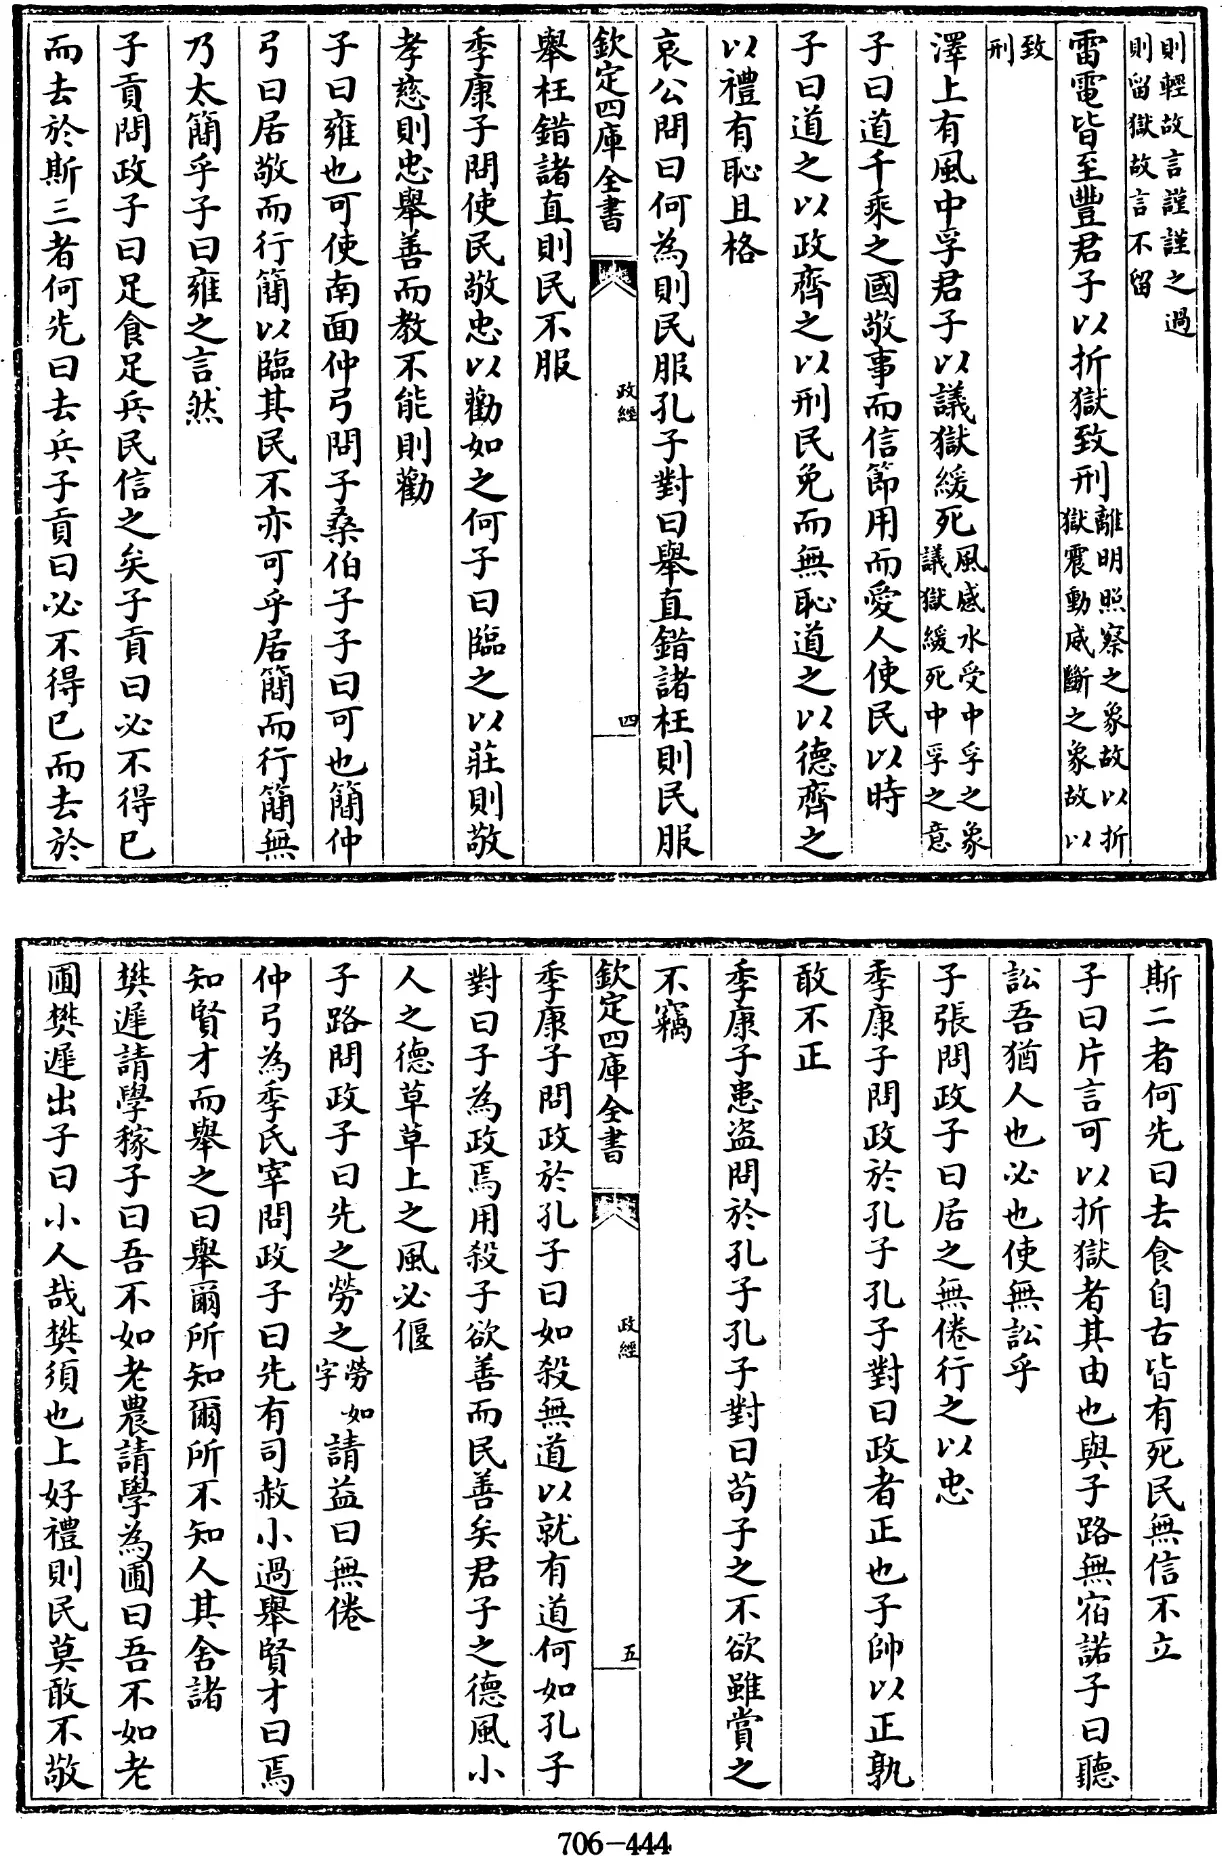 則輕故言謹謹之過
則留獄故言不留
雷電皆至豐君子以折獄致刑離明照察之象故以折
獄震動威斷之象故以
致
刑
澤上有風中孚君子以議獄緩死風感水受中孚之象
議獄緩死中孚之意
子曰道千乘之國敬事而信節用而愛人使民以時
子曰道之以政齊之以刑民免而無恥道之以德齊之
以禮有恥且格
哀公問曰何為則民服孔子對曰舉直錯諸枉則民服
欽定四庫全書 政經 四
舉枉錯諸直則民不服
季康子問使民敬忠以勸如之何子曰臨之以莊則敬
孝慈則忠舉善而教不能則勸
子曰雍也可使南面仲弓問子桑伯子子曰可也簡仲
弓曰居敬而行簡以臨其民不亦可乎居簡而行簡無
乃太簡乎子曰雍之言然
子貢問政子曰足食足兵民信之矣子貢曰必不得已
而去於斯三者何先曰去兵子貢曰必不得已而去於
斯二者何先曰去食自古皆有死民無信不立
子曰片言可以折獄者其由也與子路無宿諾子曰聽
訟吾猶人也必也使無訟乎
子張問政子曰居之無倦行之以忠
季康子問政於孔子孔子對曰政者正也子帥以正孰
敢不正
季康子患盜問於孔子孔子對曰苟子之不欲雖賞之
不竊
欽定四庫全書 政經 五
季康子問政於孔子曰如殺無道以就有道何如孔子
對曰子為政焉用殺子欲善而民善矣君子之德風小
人之德草草上之風必偃
子路問政子曰先之勞之勞如
字請益曰無倦
仲弓為季氏宰問政子曰先有司赦小過舉賢才曰焉
知賢才而舉之曰舉爾所知爾所不知人其舍諸
樊遲請學稼子曰吾不如老農請學為圃曰吾不如老
圃樊遲出子曰小人哉樊須也上好禮則民莫敢不敬
706-444